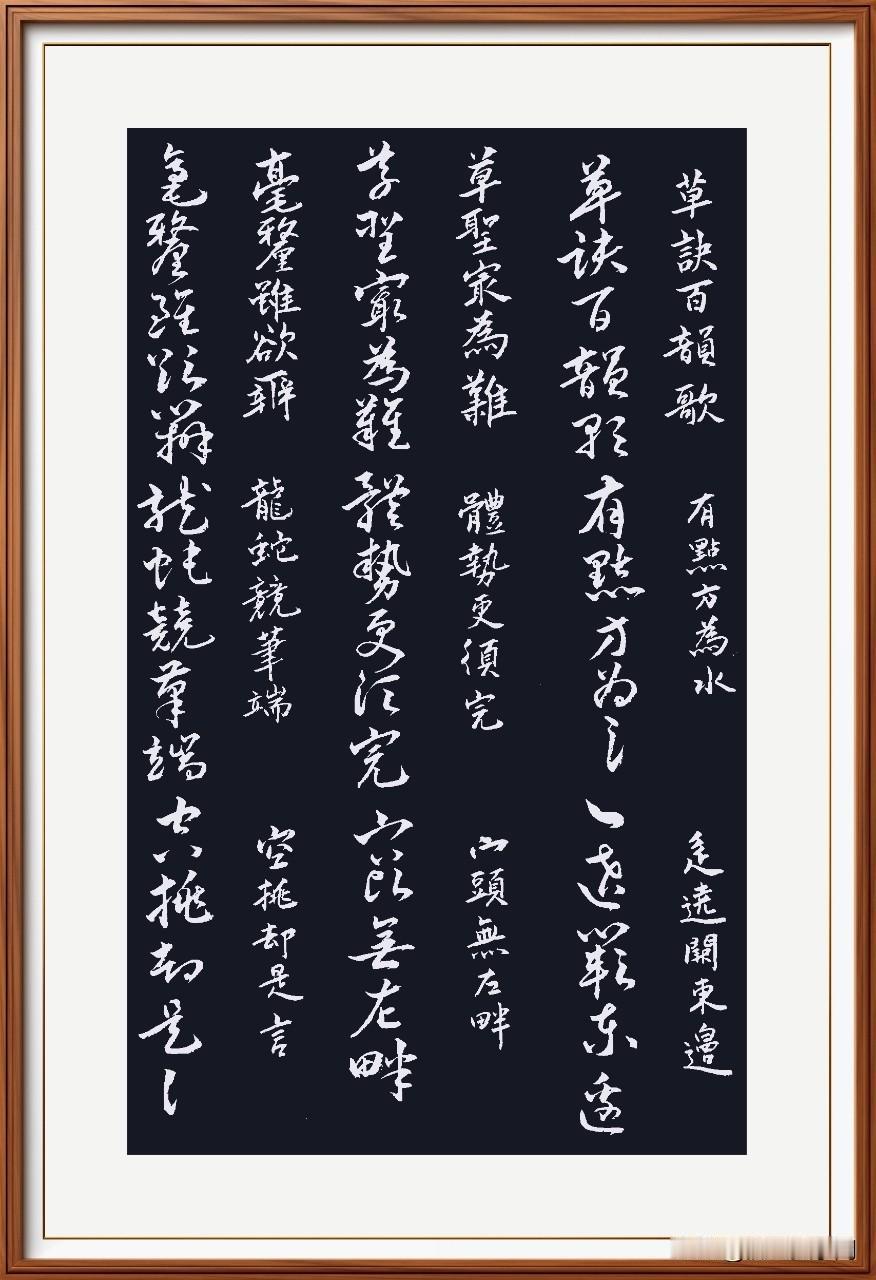 草訣百韻歌 有點方為水 辵遶闕東邊
草訣百韻歌 有點方為水 辵遶闕東邊
草聖最為難 體勢更須完 宀頭無左畔
草聖最為難 體勢更須完 宀頭無左畔
毫釐雖欲辨 龍蛇競筆端 空挑却是言
毫釐雖欲辨 龍蛇競筆端 空挑却是言